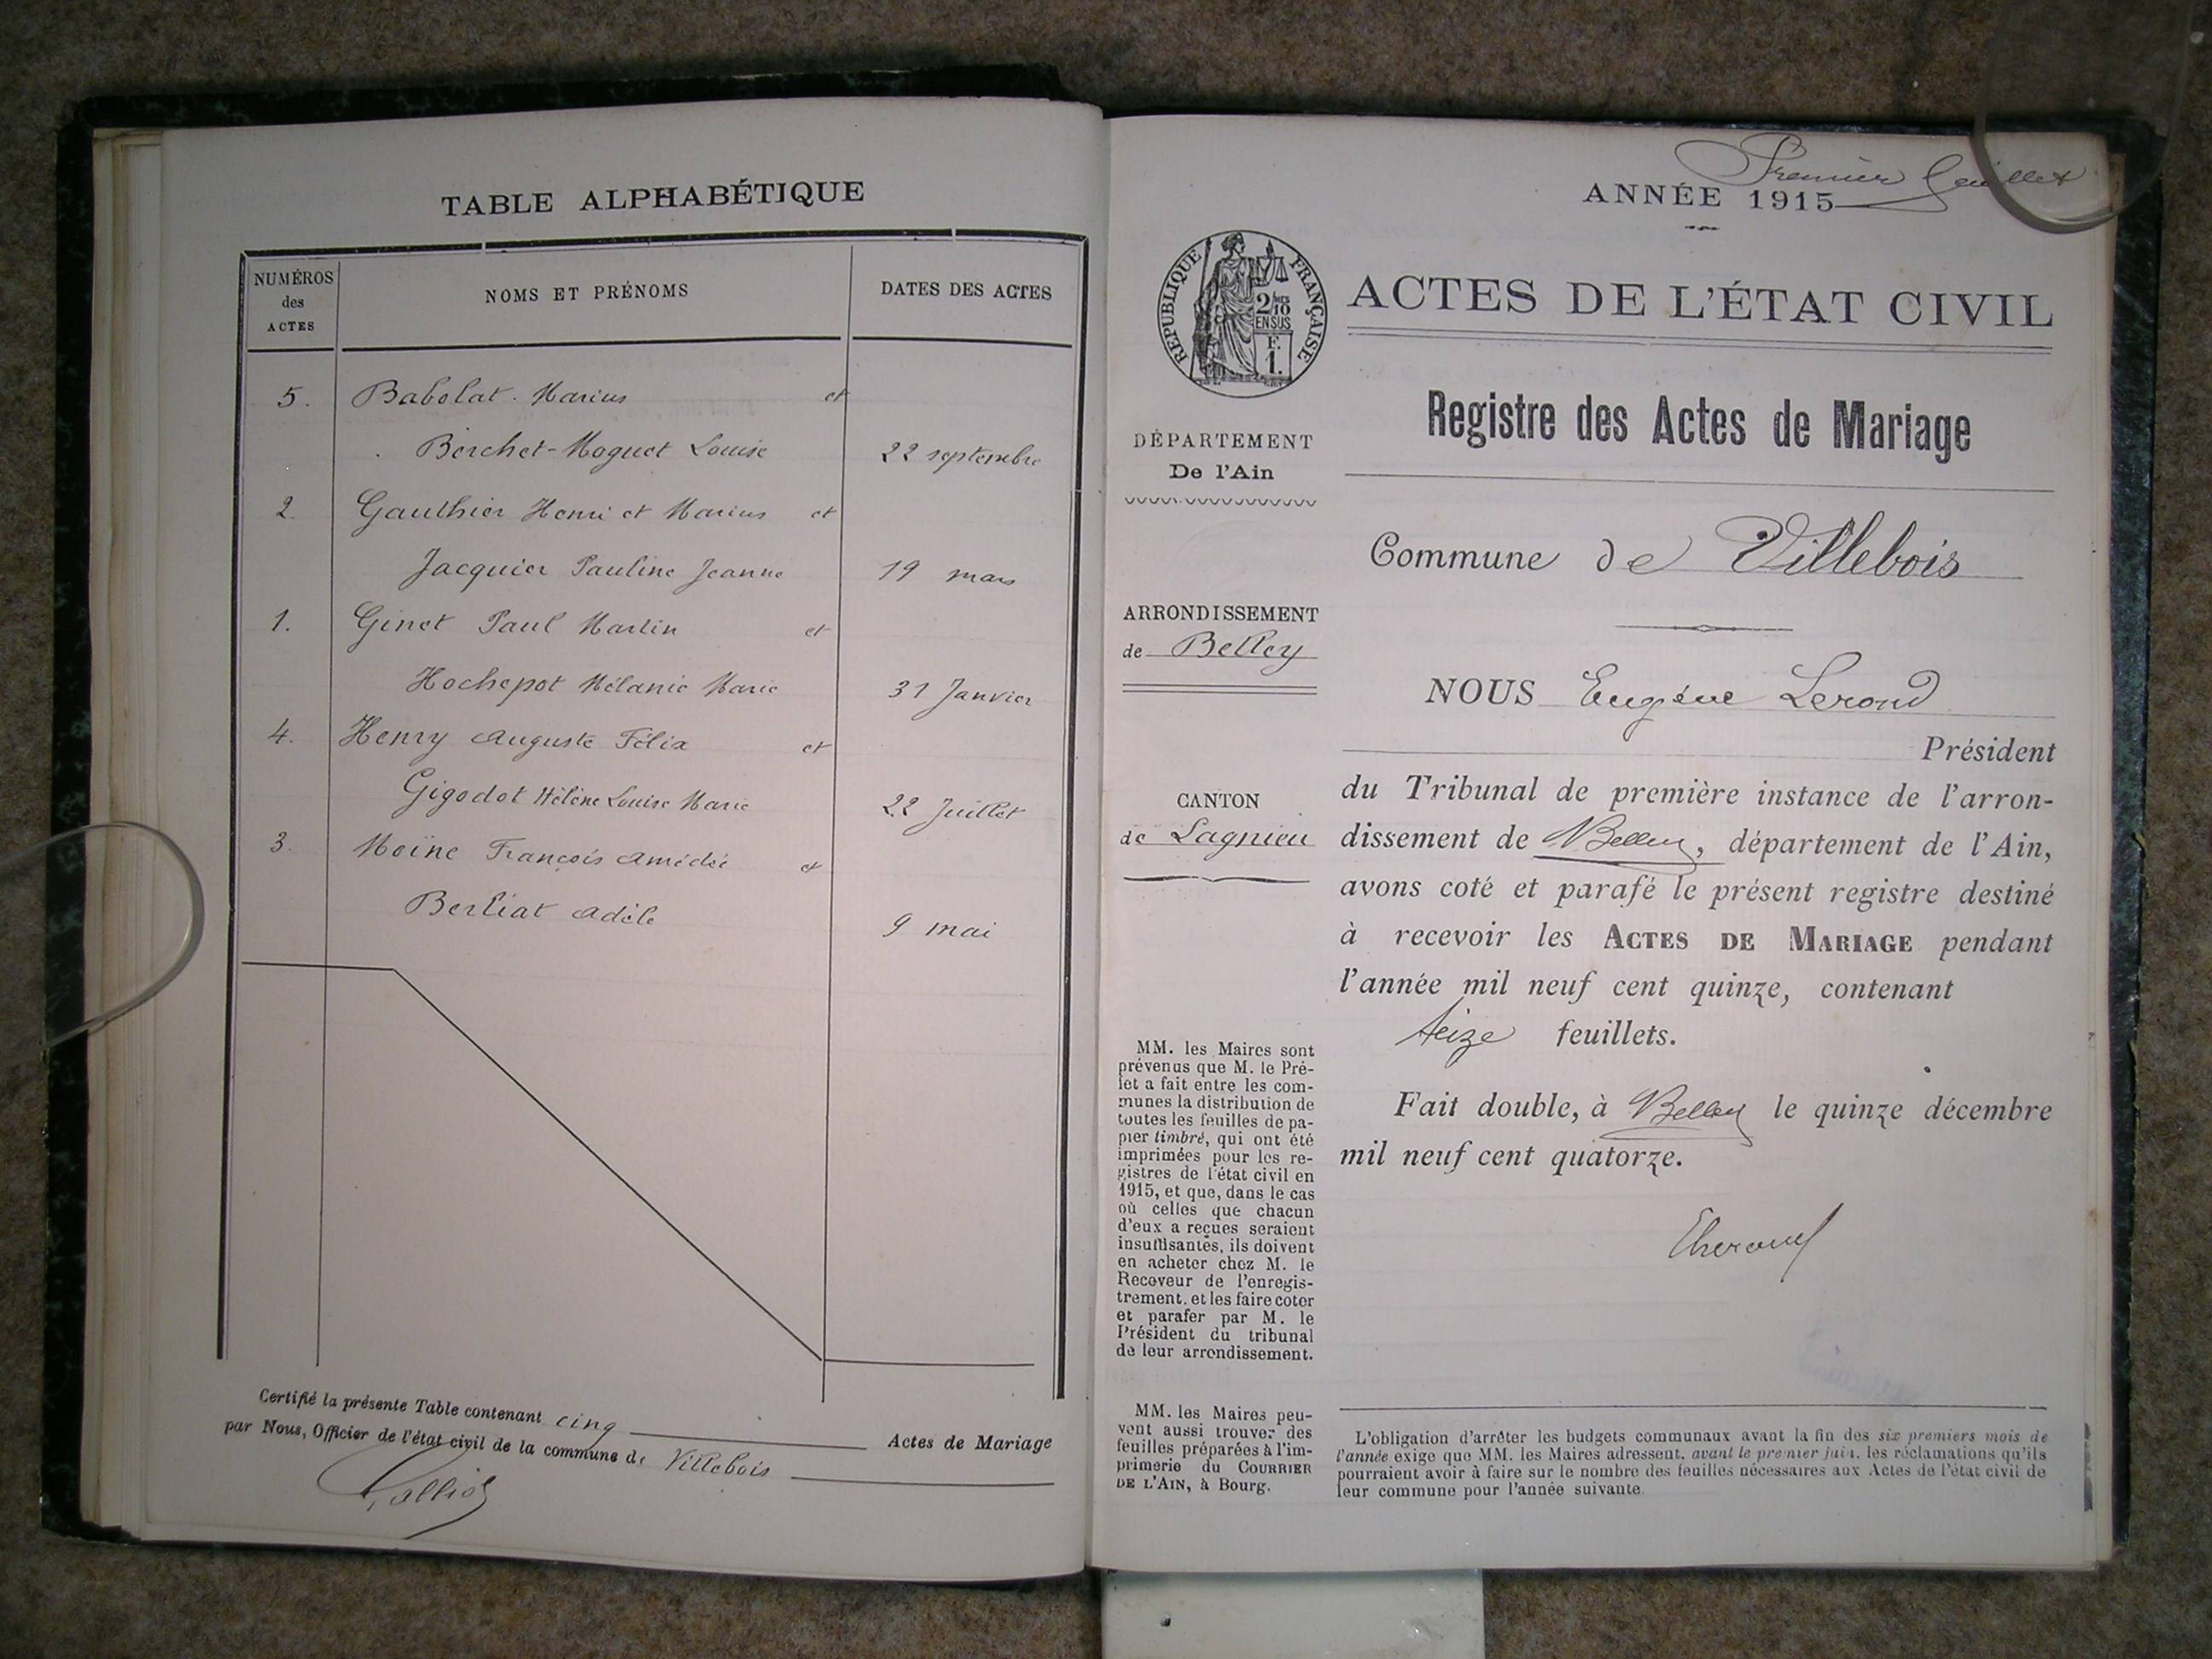 TABLE ALPHABÉTIQUE
NUMÉROS des ACTES
NOMS ET PRÉNOMS
DATES DES ACTES
5. Babolat. Marius et
Berchet-Moguet Louise 22 septembre
2. Gauthier Henri et Marius et
Jacquier Pauline Jeanne 19 mars
1. Ginet Paul Martin et
Hochepot Mélanie Marie 31 Janvier
4. Henry Auguste Félix et
Gigodot Hélène Louise Marie 22 Juillet
3. Moïne François Amédée et
Berliat Adèle 9 mai
Certifié la présente Table contenant cinq Actes de Mariage
par Nous, Officier de l'état civil de la commune de Villebois
Premier feuillet
ANNÉE 1915
RÉPUBLIQUE FRANÇAISE
2/10
EN SUS
F.
1.
ACTES DE L'ÉTAT CIVIL
Registre des Actes de Mariage
DÉPARTEMENT
De l'Ain
Commune de Villebois
ARRONDISSEMENT
de Belley
NOUS Eugène Lerond
Président
CANTON
de Lagnieu
du Tribunal de première instance de l'arron-
dissement de Belley, département de l'Ain,
avons coté et parafé le présent registre destiné
à recevoir les ACTES DE MARIAGE pendant
l'année mil neuf cent quinze, contenant
seize feuillets.
Fait double, à Belley le quinze décembre
mil neuf cent quatorze.
MM. les Maires sont
prévenus que M. le Pré-
fet a fait entre les com-
munes la distribution de
toutes les feuilles de pa-
pier timbré, qui ont été
imprimées pour les re-
gistres de l'état civil en
1915, et que, dans le cas
où celles que chacun
d'eux a reçues seraient
insuffisantes, ils doivent
en acheter chez M. le
Receveur de l'enregis-
trement, et les faire coter
et parafer par M. le
Président du tribunal
de leur arrondissement.
MM. les Maires peu-
vent aussi trouver des
feuilles préparées à l'im-
primerie du COURRIER
DE L'AIN, à Bourg.
L'obligation d'arrêter les budgets communaux avant la fin des six premiers mois de
l'année exige que MM. les Maires adressent, avant le premier juin, les réclamations qu'ils
pourraient avoir à faire sur le nombre des feuilles nécessaires aux Actes de l'état civil de
leur commune pour l'année suivante.